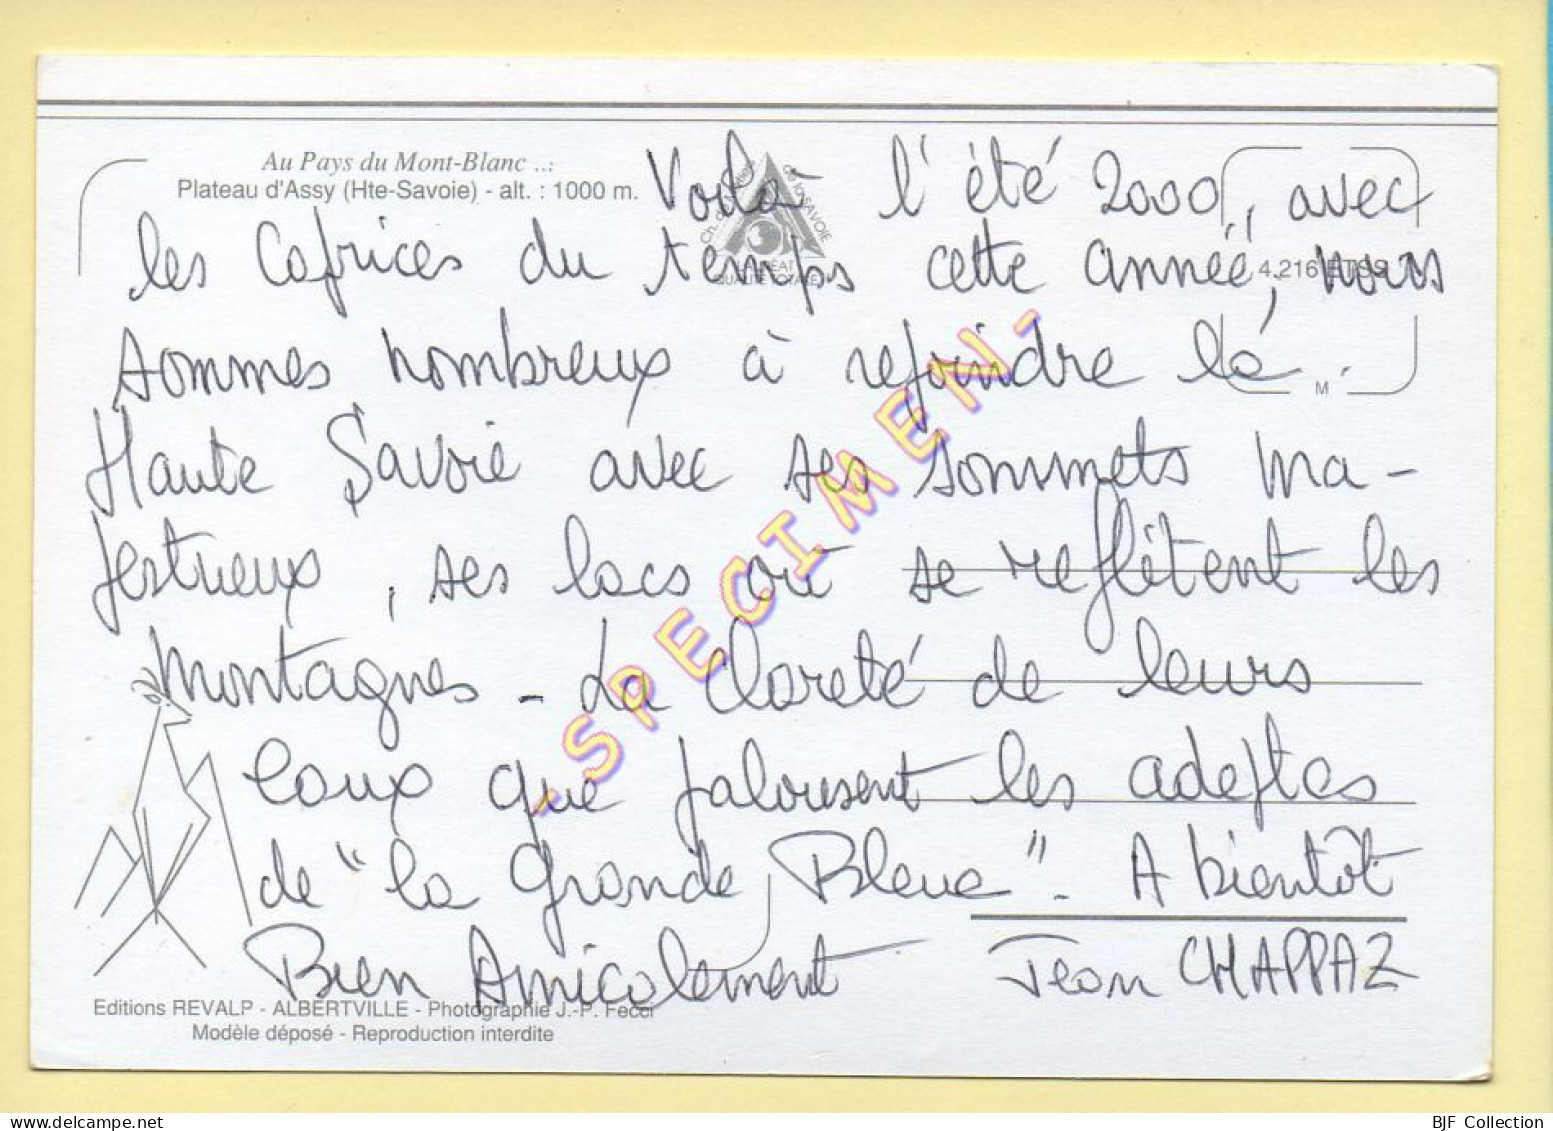 Au Pays du Mont-Blanc ...:
Plateau d'Assy (Hte-Savoie) - alt. : 1000 m.
Voilà l'été 2000, avec
les caprices du temps cette année, nous
sommes nombreux à rejoindre la
Haute Savoie avec ses sommets ma-
jestueux, ses lacs où se reflètent les
montagnes - La clareté de leurs
eaux que jalousent les adeptes
de "la grande Bleue". A bientôt
Bien Amicalement Jean CHAPPAZ
4.216
M
-SPECIMEN-
Editions REVALP - ALBERTVILLE - Photographie J.-P. Fecci
Modèle déposé - Reproduction interdite
BJF Collection